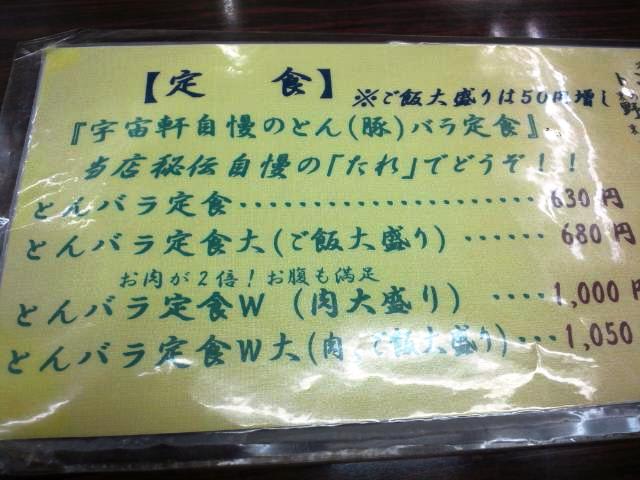 【定 食】
※ご飯大盛りは50円増し
『宇宙軒自慢のとん(豚)バラ定食』
当店秘伝自慢の「たれ」でどうぞ！！
とんバラ定食……………………630円
とんバラ定食大(ご飯大盛り)……680円
お肉が2倍！お腹も満足
とんバラ定食W (肉大盛り) ····1,000円
とんバラ定食W大(肉、ご飯大盛り)···1,050
野